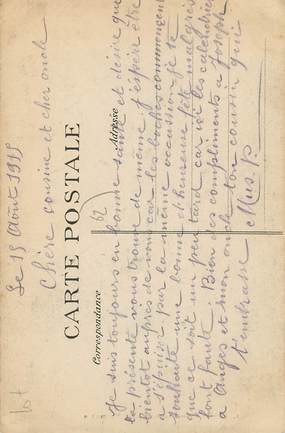 Le 15 Août 1915
Chère cousine et cher oncle
CARTE POSTALE
Correspondance
Adresse
62
Je suis toujours en bonne santé et désire que
la présente vous trouve de même. J'espère être
bientôt auprès de vous car les boches commencent
a s'épuiser par la même occassion je te
souhaite une bonne et heureuse fête malgrés
que ce soit un peu tard car ici les calendriers
font faute. Bien des compliments a Joseph
a Anges et mon oncle ton cousin qui
t'embrasse
Lot